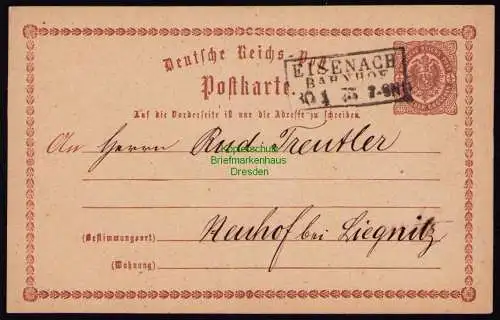 Deutsche Reichs-Post
EISENACH
BAHNHOF
Postkarte.
Auf die Vorderseite ist nur die Adresse zu schreiben.
Kopierschutz
Briefmarkenhaus
Dresden
An Herrn Rud. Treutler
Neuhof bei Liegnitz
(Bestimmungsort)
(Wohnung)